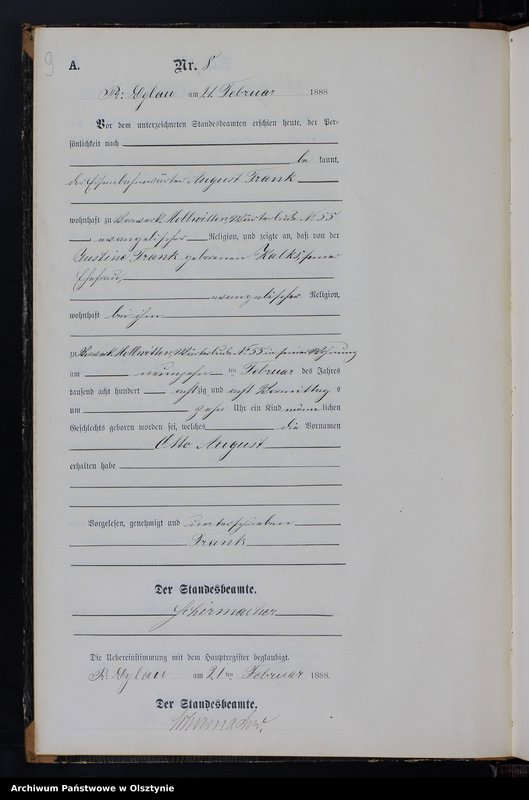 9
A.
Nr. 8
Pr: Eylau am 21. Februar 1888.
Vor dem unterzeichneten Standesbeamten erschien heute, der Per-
sönlichkeit nach
be kannt,
der Eisenbahnwärter August Frank
wohnhaft zu Vorwerk Hellwitten, Wärterbude No 55
evangelischer Religion, und zeigte an, daß von der
Justine Frank geborenen Kalks, seiner
Ehefrau,
evangelischer Religion,
wohnhaft bei ihm
zu Vorwerk Hellwitten, Wärterbude No 55 in seiner Wohnung
am neunzehn ten Februar des Jahres
tausend acht hundert achtzig und acht Vormittag s
um zehn Uhr ein Kind männlichen
Geschlechts geboren worden sei, welches die Vornamen
Otto August
erhalten habe
Vorgelesen, genehmigt und unterschrieben
Frank
Der Standesbeamte.
Schirmacher
Die Uebereinstimmung mit dem Hauptregister beglaubigt.
Pr: Eylau am 21 ten Februar 1888.
Der Standesbeamte.
Schirmacher.
Archiwum Państwowe w Olsztynie